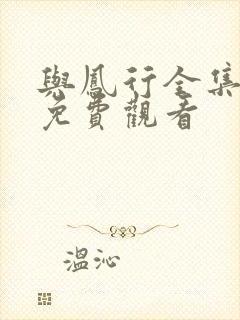 與鳳行全集
免費觀看
溫沁